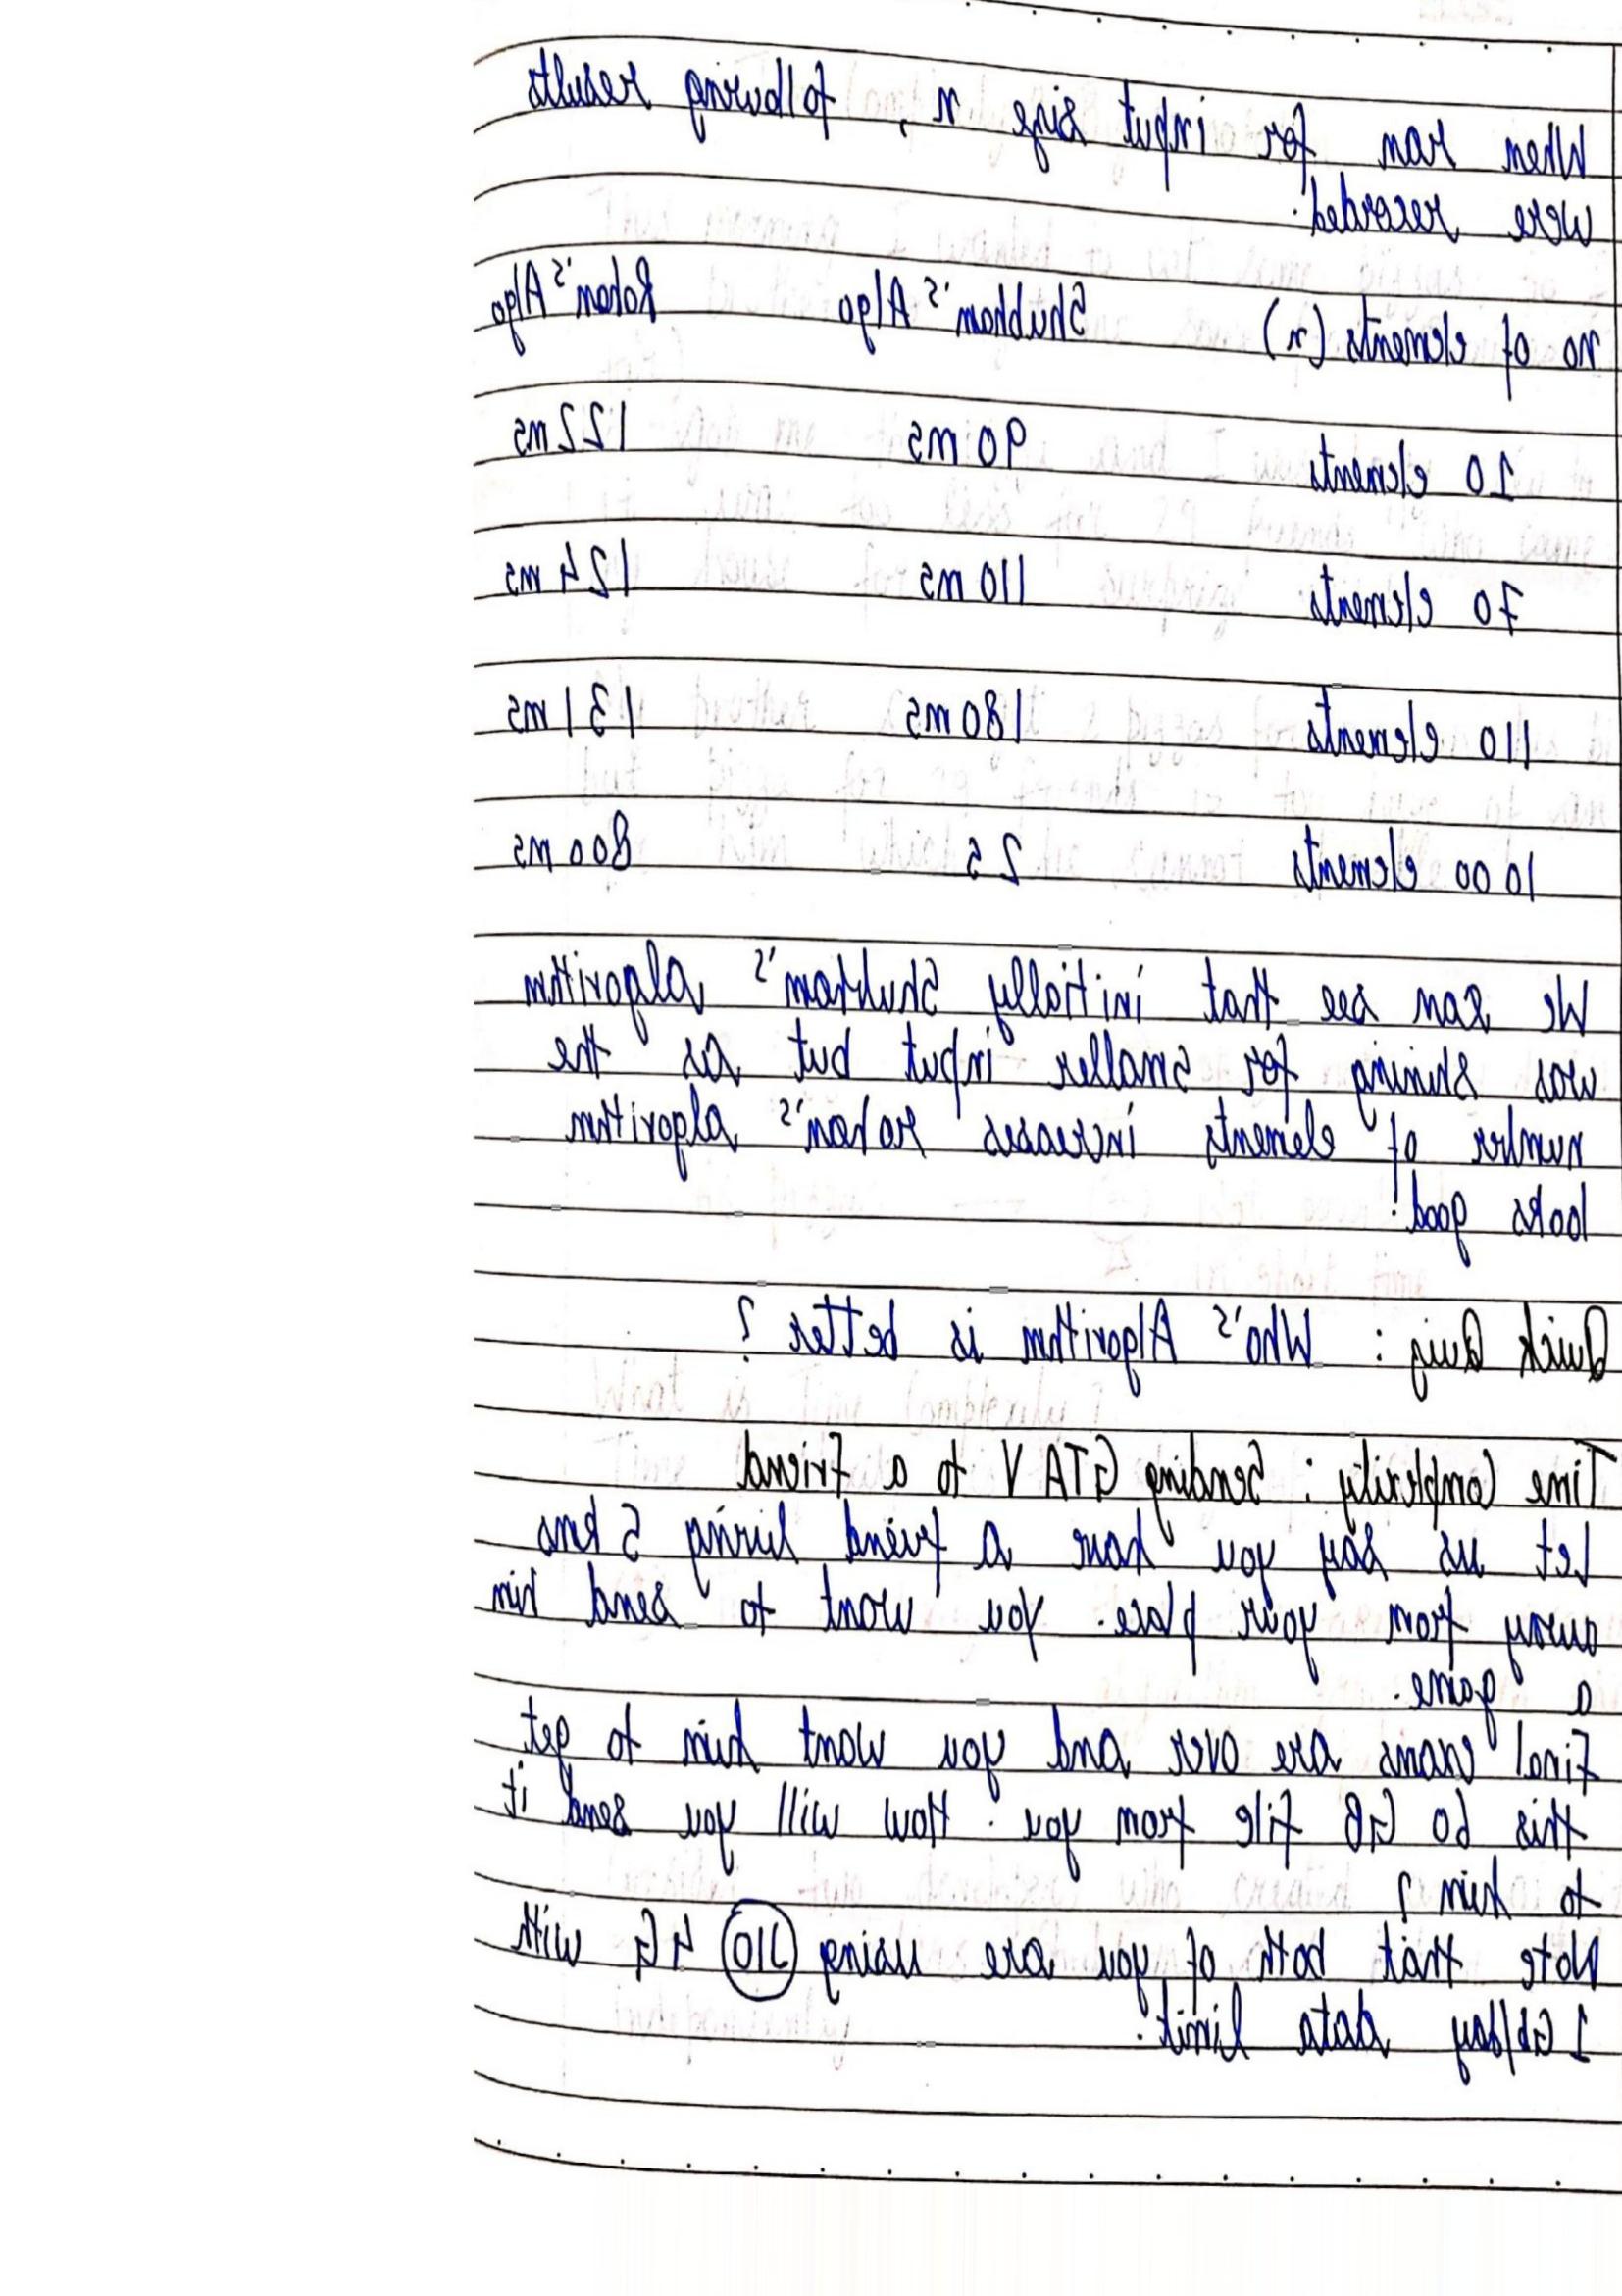 When ran for input size n, following results
were recorded.
no of elements (n) Shubham's Algo Rohan's Algo
10 elements 90 ms 122 ms
70 elements 110 ms 124 ms
110 elements 180 ms 131 ms
1000 elements 2s 800 ms
We can see that initially Shubham's algorithm
was shining for smaller input but as the
number of elements increases rohan's algorithm
looks good!
Quick Quiz : Who's Algorithm is better ?
Time Complexity : Sending GTA V to a friend
Let us say you have a friend living 5 kms
away from your place. You want to send him
a game.
Final exams are over and you want him to get
this 60 GB file from you. How will you send it
to him?
Note that both of you are using JIO 4G with
1 Gb/day data limit.